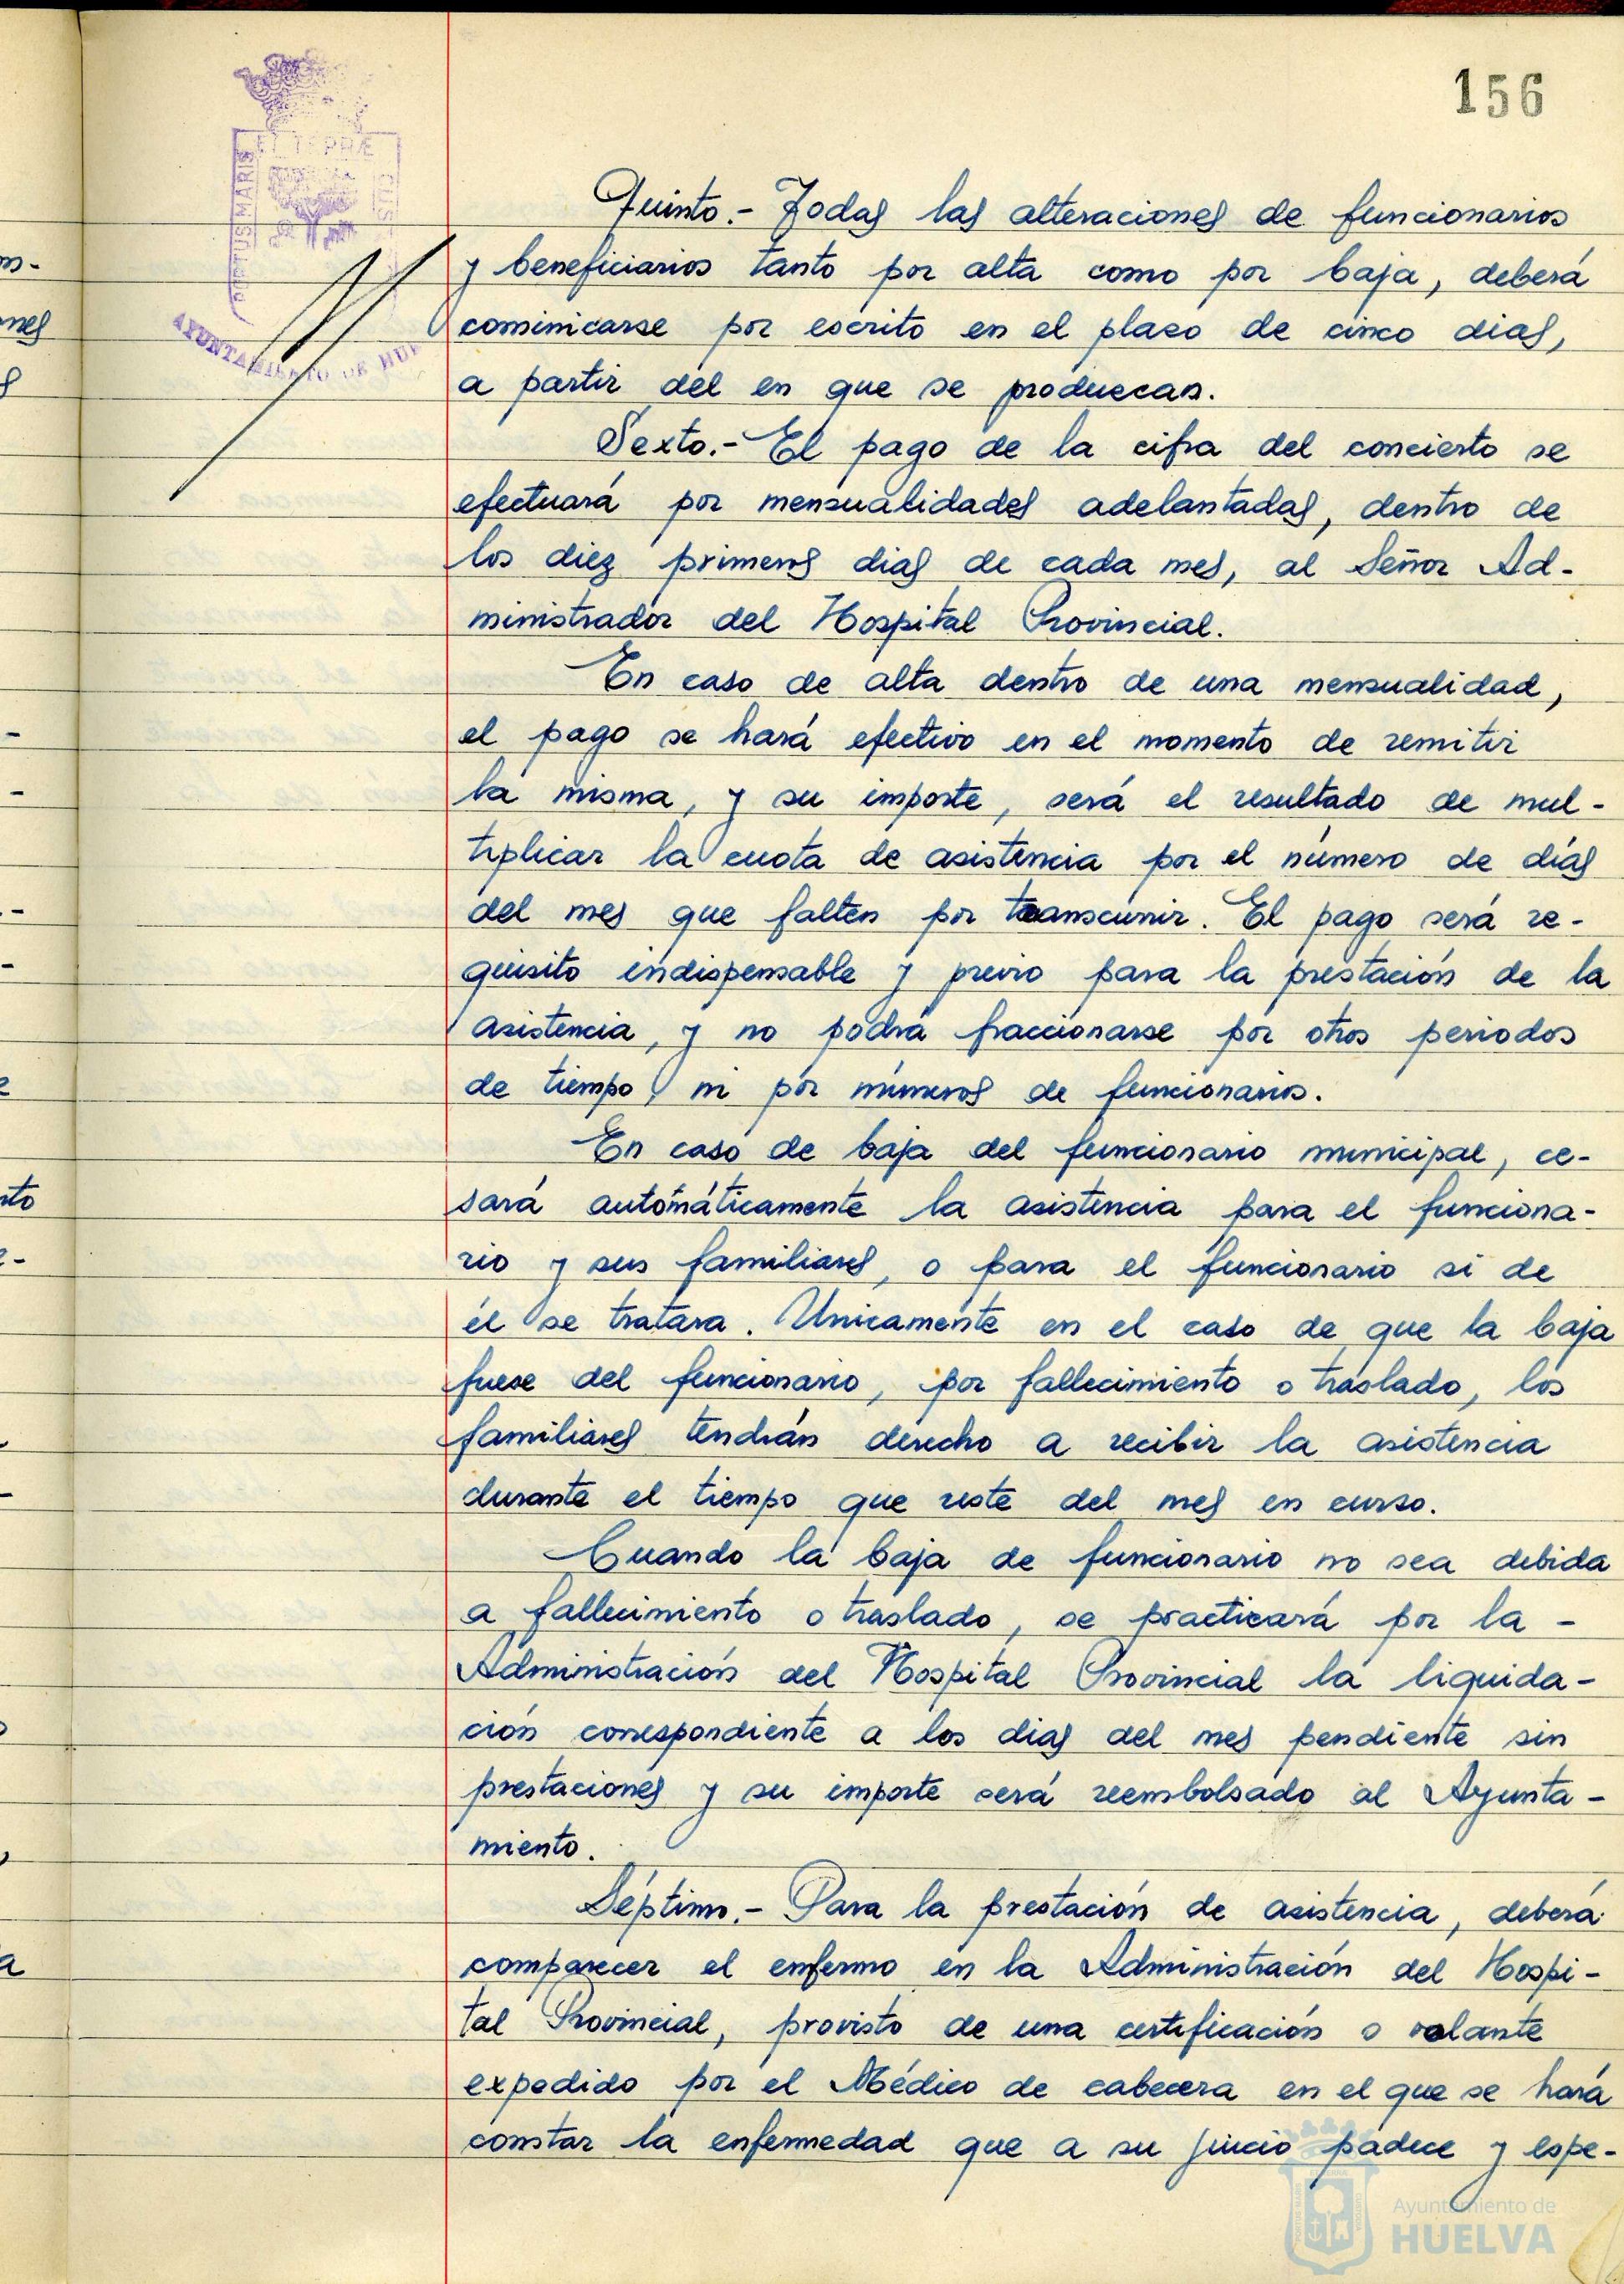 156
ET TERRÆ
PORTUS MARIS
AYUNTAMIENTO DE HUE
Quinto.- Todas las alteraciones de funcionarios
y beneficiarios tanto por alta como por baja, deberá
cominicarse por escrito en el plazo de cinco dias,
a partir del en que se produzcan.
Sexto.- El pago de la cifra del concierto se
efectuará por mensualidades adelantadas, dentro de
los diez primeros dias de cada mes, al Señor Ad-
ministrador del Hospital Provincial.
En caso de alta dentro de una mensualidad,
el pago se hará efectivo en el momento de remitir
la misma, y su importe, será el resultado de mul-
tiplicar la cuota de asistencia por el número de días
del mes que falten por transcurrir. El pago será re-
quisito indispensable y previo para la prestación de la
asistencia, y no podrá fraccionarse por otros periodos
de tiempo, ni por números de funcionarios.
En caso de baja del funcionario municipal, ce-
sará automáticamente la asistencia para el funciona-
rio y sus familiares, o para el funcionario si de
él se tratara. Unicamente en el caso de que la baja
fuese del funcionario, por fallecimiento o traslado, los
familiares tendrán derecho a recibir la asistencia
durante el tiempo que reste del mes en curso.
Cuando la baja de funcionario no sea debida
a fallecimiento o traslado, se practicará por la -
Administración del Hospital Provincial la liquida-
ción correspondiente a los dias del mes pendiente sin
prestaciones y su importe será reembolsado al Ayunta-
miento.
Séptimo.- Para la prestación de asistencia, deberá
comparecer el enfermo en la Administración del Hospi-
tal Provincial, provisto de una certificación o volante
expedido por el Médico de cabecera en el que se hará
constar la enfermedad que a su juicio padece y espe-
Ayuntamiento de
HUELVA